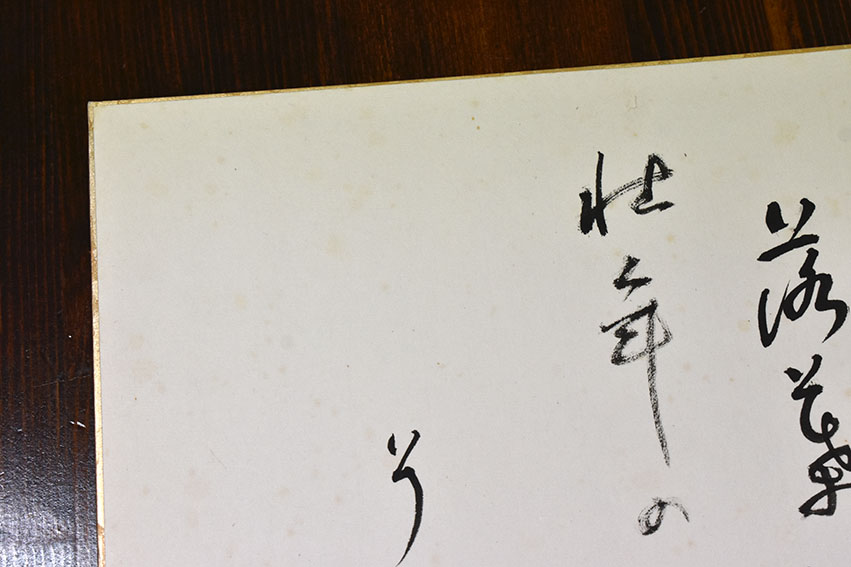 落葉
壮年の